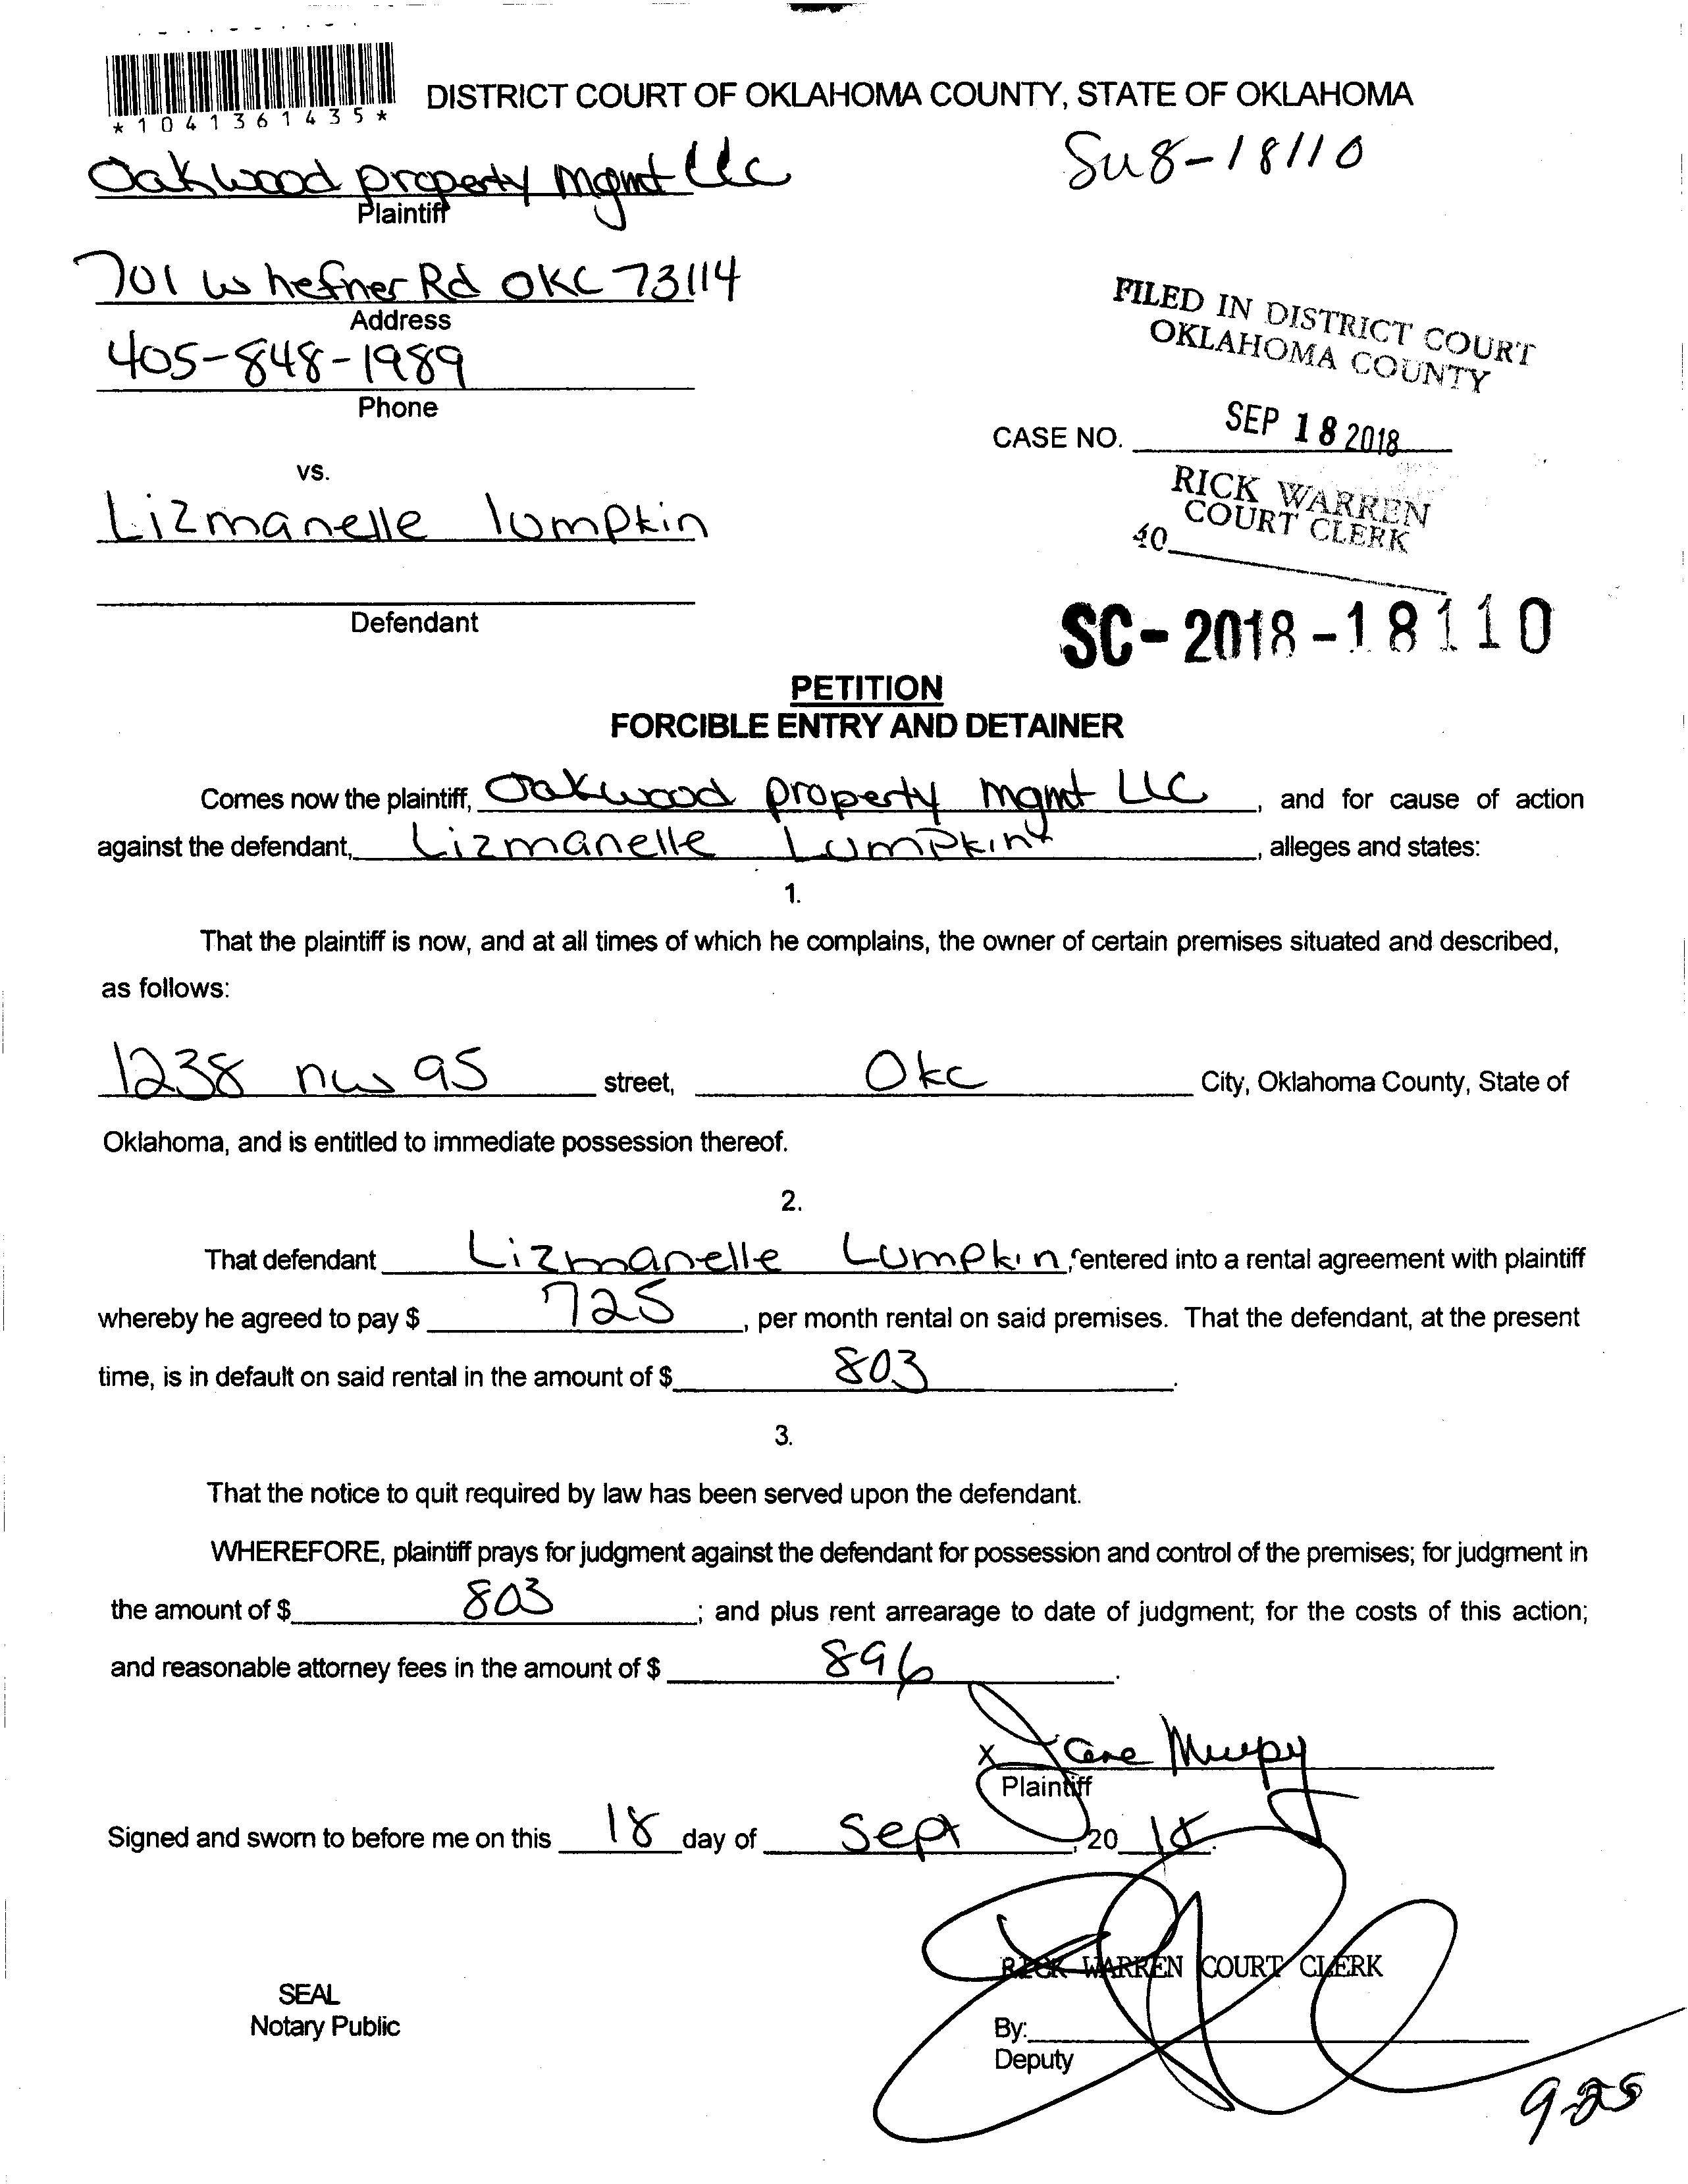 *1041361435*
DISTRICT COURT OF OKLAHOMA COUNTY, STATE OF OKLAHOMA
Oakwood property mgmt LLC
Plaintiff
Su8-18110
701 W hefner Rd OKC 73114
Address
405-848-1989
Phone
FILED IN DISTRICT COURT
OKLAHOMA COUNTY
CASE NO. SEP 18 2018
vs.
RICK WARREN
COURT CLERK
40
Lizmanelle lumpkin
Defendant
SC-2018-18110
PETITION
FORCIBLE ENTRY AND DETAINER
Comes now the plaintiff, Oakwood property mgmt LLC, and for cause of action
against the defendant, Lizmanelle Lumpkin, alleges and states:
1.
That the plaintiff is now, and at all times of which he complains, the owner of certain premises situated and described,
as follows:
1238 nw 95 street, Okc City, Oklahoma County, State of
Oklahoma, and is entitled to immediate possession thereof.
2.
That defendant Lizmanelle Lumpkin, entered into a rental agreement with plaintiff
whereby he agreed to pay $ 725, per month rental on said premises. That the defendant, at the present
time, is in default on said rental in the amount of $ 803.
3.
That the notice to quit required by law has been served upon the defendant.
WHEREFORE, plaintiff prays for judgment against the defendant for possession and control of the premises; for judgment in
the amount of $ 803; and plus rent arrearage to date of judgment; for the costs of this action;
and reasonable attorney fees in the amount of $ 896.
X Jane Murpy
Plaintiff
Signed and sworn to before me on this 18 day of Sept, 20 18.
RICK WARREN COURT CLERK
SEAL
Notary Public
By:
Deputy
9-25